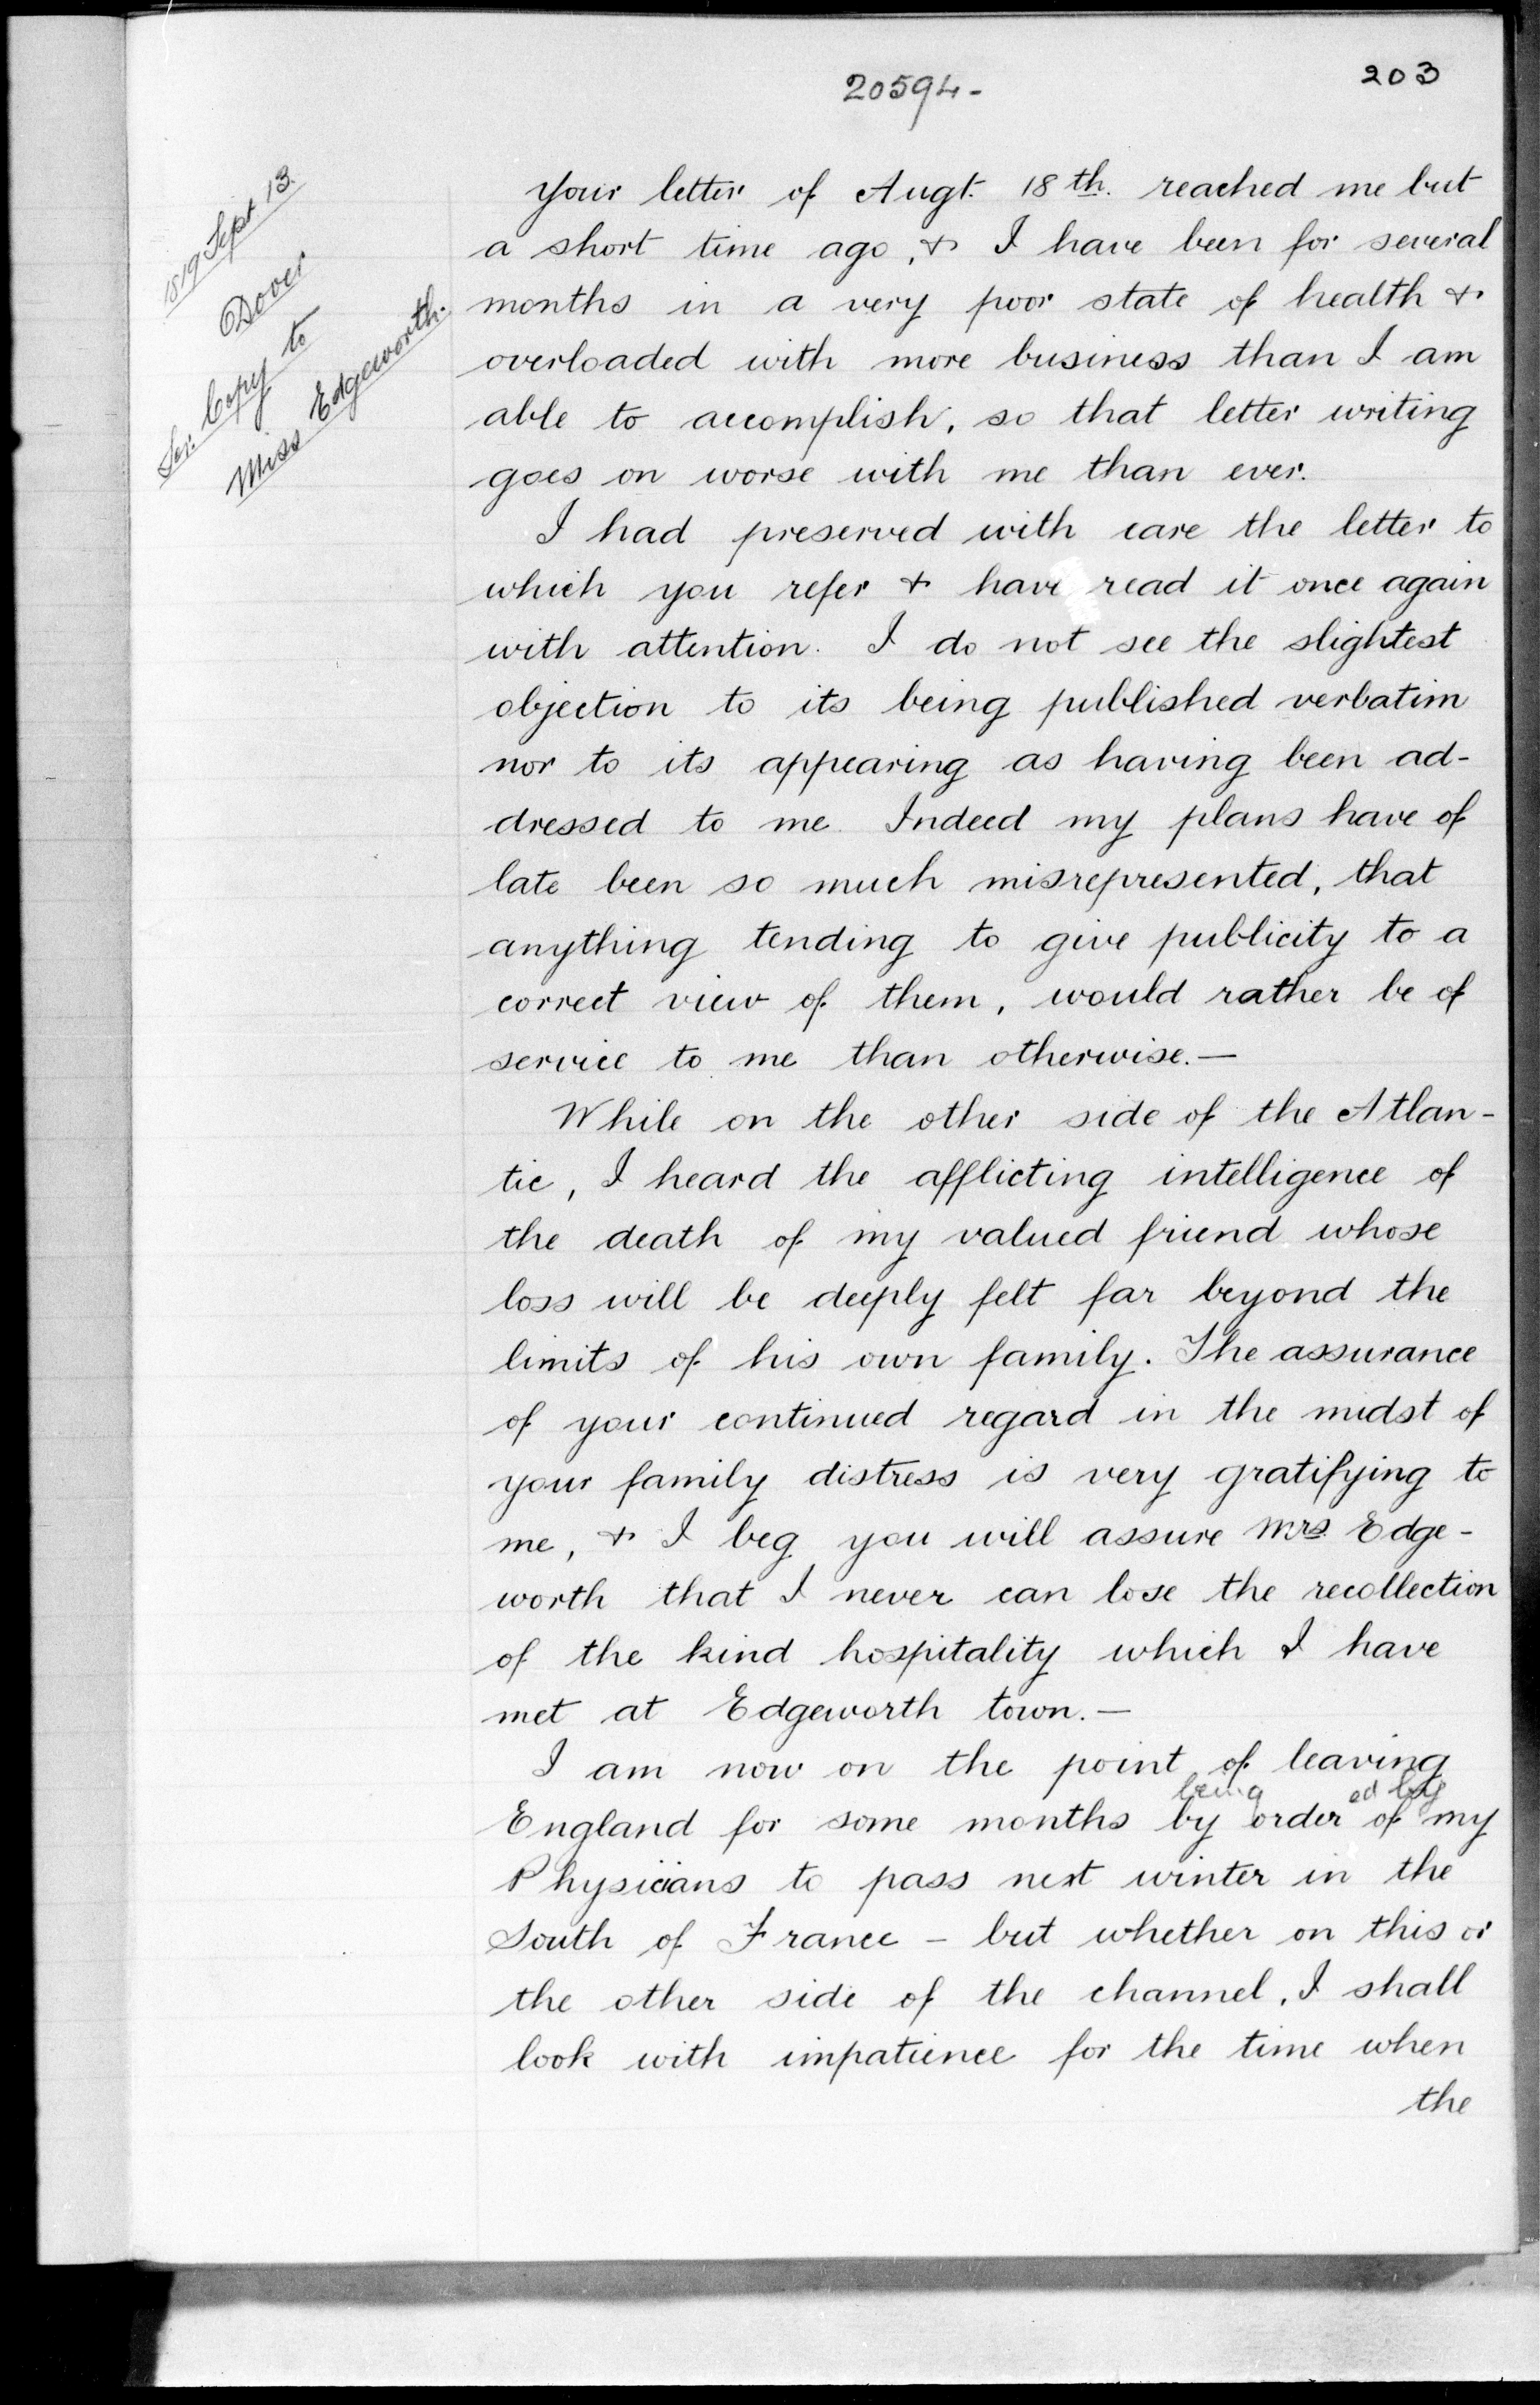 20594-
203
1819 Sept 13.
Dover
Copy to
Miss Edgeworth.
Your letter of Augt. 18th. reached me but
a short time ago, & I have been for several
months in a very poor state of health &
overloaded with more business than I am
able to accomplish, so that letter writing
goes on worse with me than ever.
I had preserved with care the letter to
which you refer & have read it once again
with attention. I do not see the slightest
objection to its being published verbatim
nor to its appearing as having been ad-
dressed to me. Indeed my plans have of
late been so much misrepresented, that
anything tending to give publicity to a
correct view of them, would rather be of
service to me than otherwise.—
While on the other side of the Atlan-
tic, I heard the afflicting intelligence of
the death of my valued friend whose
loss will be deeply felt far beyond the
limits of his own family. The assurance
of your continued regard in the midst of
your family distress is very gratifying to
me, & I beg you will assure Mrs. Edge-
worth that I never can lose the recollection
of the kind hospitality which I have
met at Edgeworth town.—
I am now on the point of leaving
being ed by
England for some months by order of my
Physicians to pass next winter in the
South of France - but whether on this or
the other side of the channel, I shall
look with impatience for the time when
the